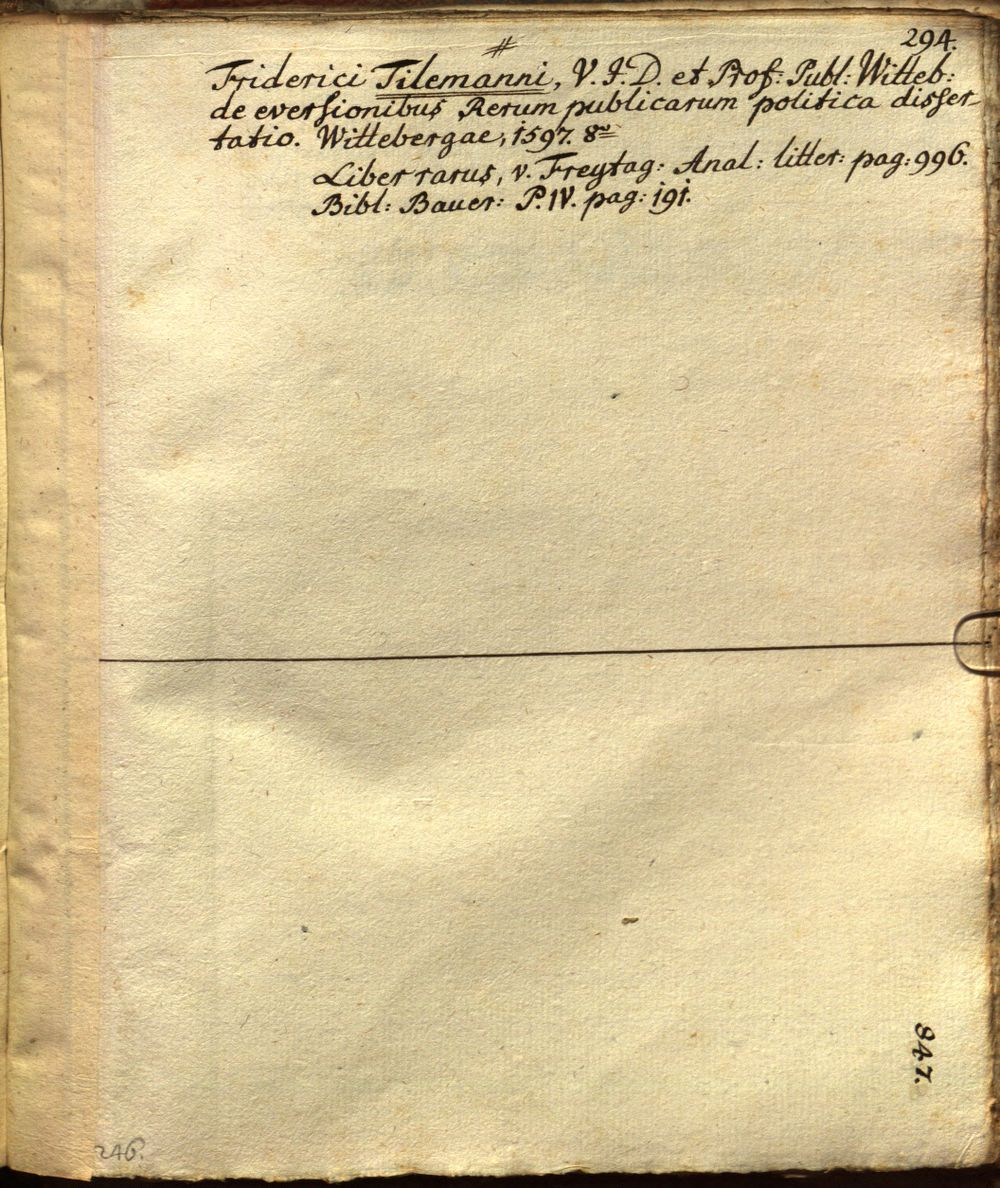 294.
#
Friderici Tilemanni, V. I. D. et Prof: Publ: Witteb:
de eversionibus Rerum publicarum politica disser-
tatio. Wittebergae, 1597. 8º
Liber rarus, v. Freytag: Anal: litter: pag: 996.
Bibl: Bauer: P. IV. pag: 191.
847.
246.